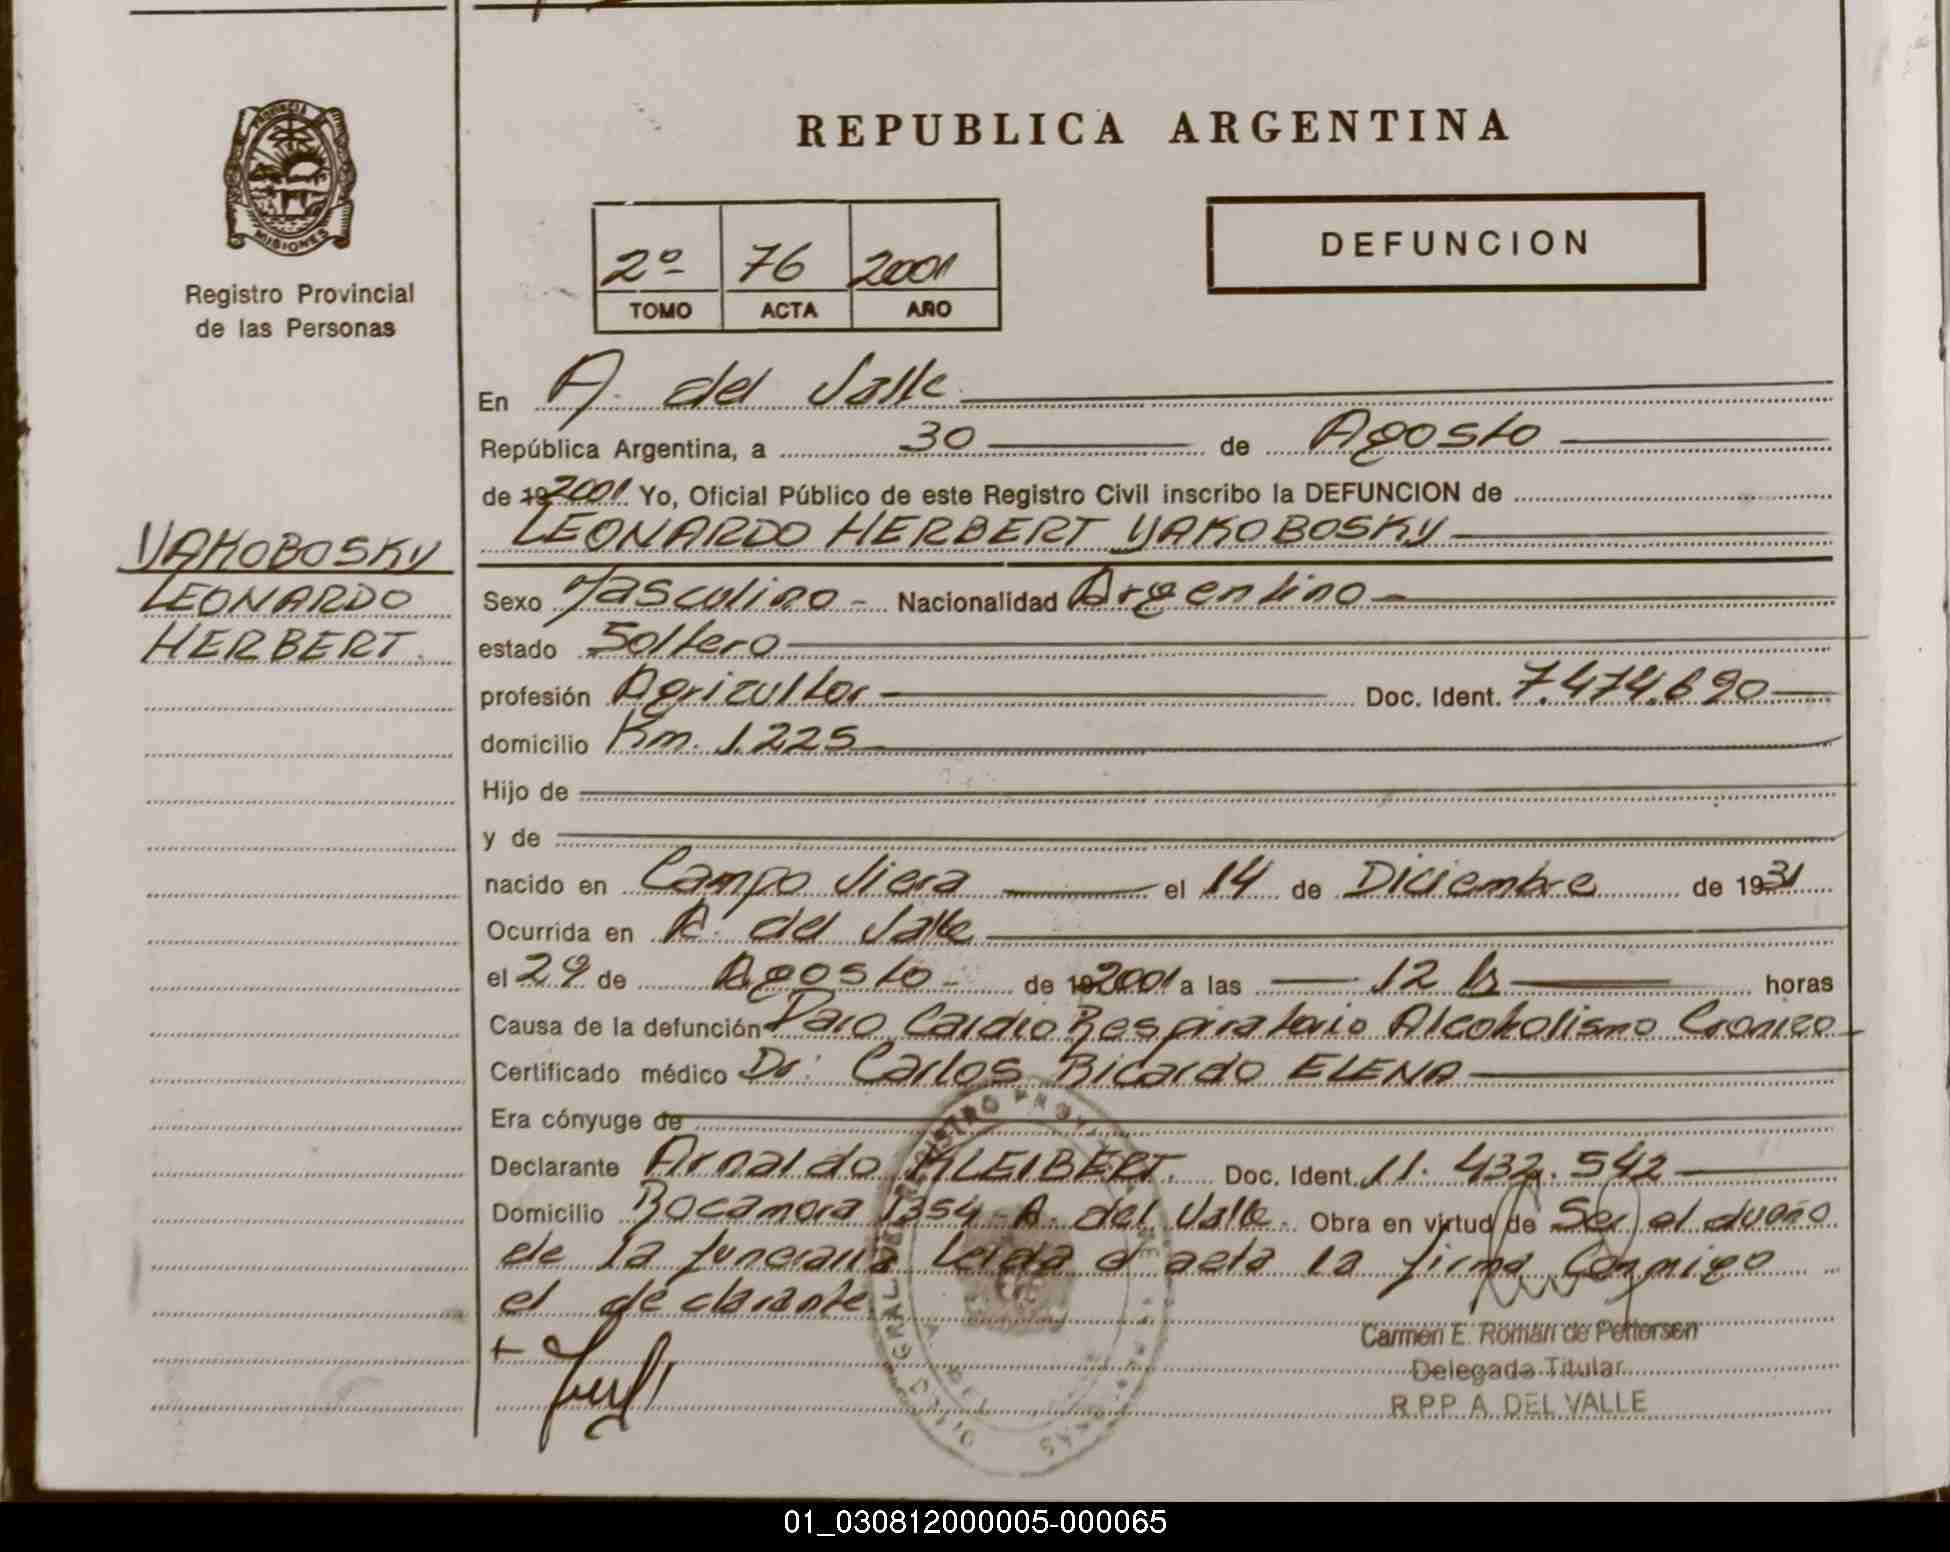 PROVINCIA
MISIONES
Registro Provincial
de las Personas
REPUBLICA ARGENTINA
DEFUNCION
2º 76 2001
TOMO ACTA AÑO
En A. del Valle
República Argentina, a 30 de Agosto
de 192001 Yo, Oficial Público de este Registro Civil inscribo la DEFUNCION de
LEONARDO HERBERT YAKOBOSKY
YAKOBOSKY
LEONARDO
HERBERT.
Sexo Masculino - Nacionalidad Argentino
estado Soltero
profesión Agricultor Doc. Ident. 7.474.690
domicilio Km. 1.225
Hijo de
y de
nacido en Campo Viera el 14 de Diciembre de 1931
Ocurrida en A. del Valle
el 29 de Agosto - de 192001 a las 12 hs horas
Causa de la defunción Paro Cardio Respiratorio Alcoholismo Cronico
Certificado médico Dr: Carlos Ricardo ELENA
Era cónyuge de
Declarante Arnaldo KLEIBERT. Doc. Ident. 11.432.542
Domicilio Rocamora 1354 - A. del Valle. Obra en virtud de Ser el dueño
de la funeraria Leida el acta la firma Conmigo
el declarante
Carmen E. Román de Pettersen
Delegada Titular
R.P.P. A. DEL VALLE
01_030812000005-000065